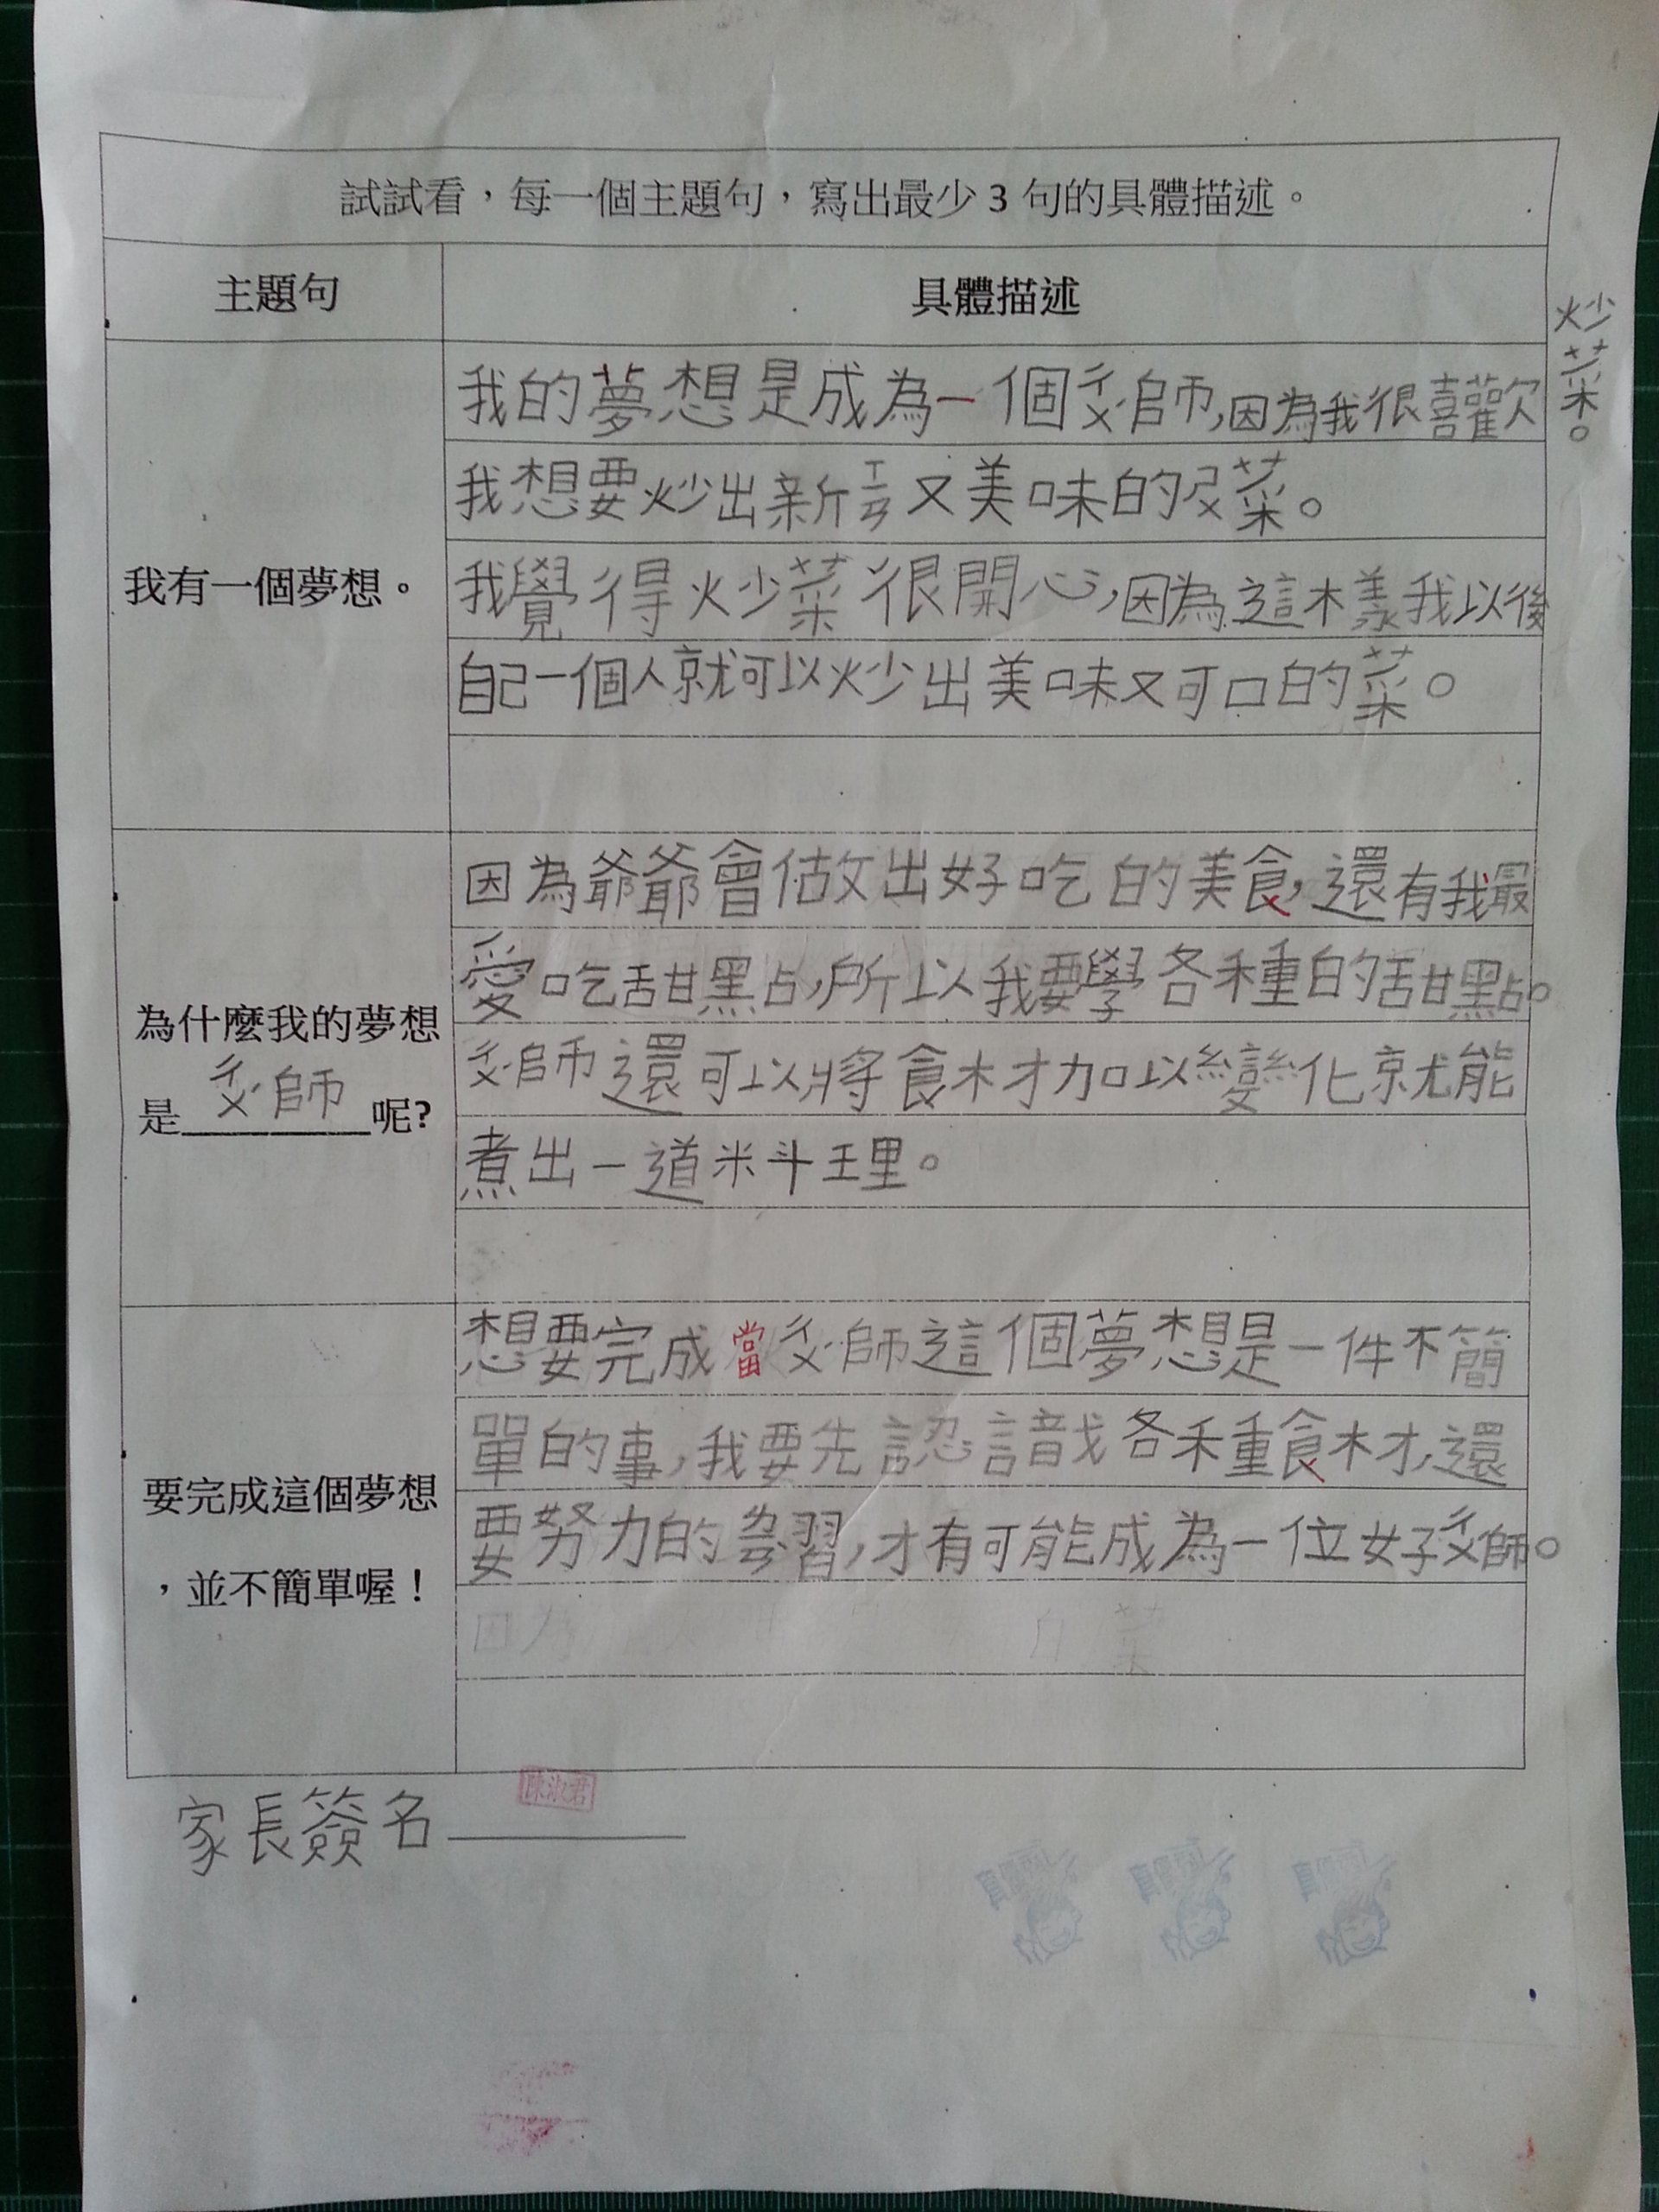 試試看，每一個主題句，寫出最少 3 句的具體描述。
主題句
具體描述
我有一個夢想。
我的夢想是成為一個ㄔㄨˊ師,因為我很喜歡
炒菜。
我想要炒出新ㄒㄧㄢ又美味的ㄕㄨ菜。
我覺得炒菜很開心,因為這樣我以後
自己一個人就可以炒出美味又可口的菜。
為什麼我的夢想
是ㄔㄨˊ師呢?
因為爺爺會做出好吃的美食,還有我最
愛吃甜點,所以我要學各種的甜點。
ㄔㄨˊ師還可以將食材加以變化就能
煮出一道料理。
要完成這個夢想
，並不簡單喔！
想要完成當ㄔㄨˊ師這個夢想是一件不簡
單的事,我要先認識各種食材,還
要努力的學習,才有可能成為一位好ㄔㄨˊ師。
因為
菜
家長簽名
陳淑君